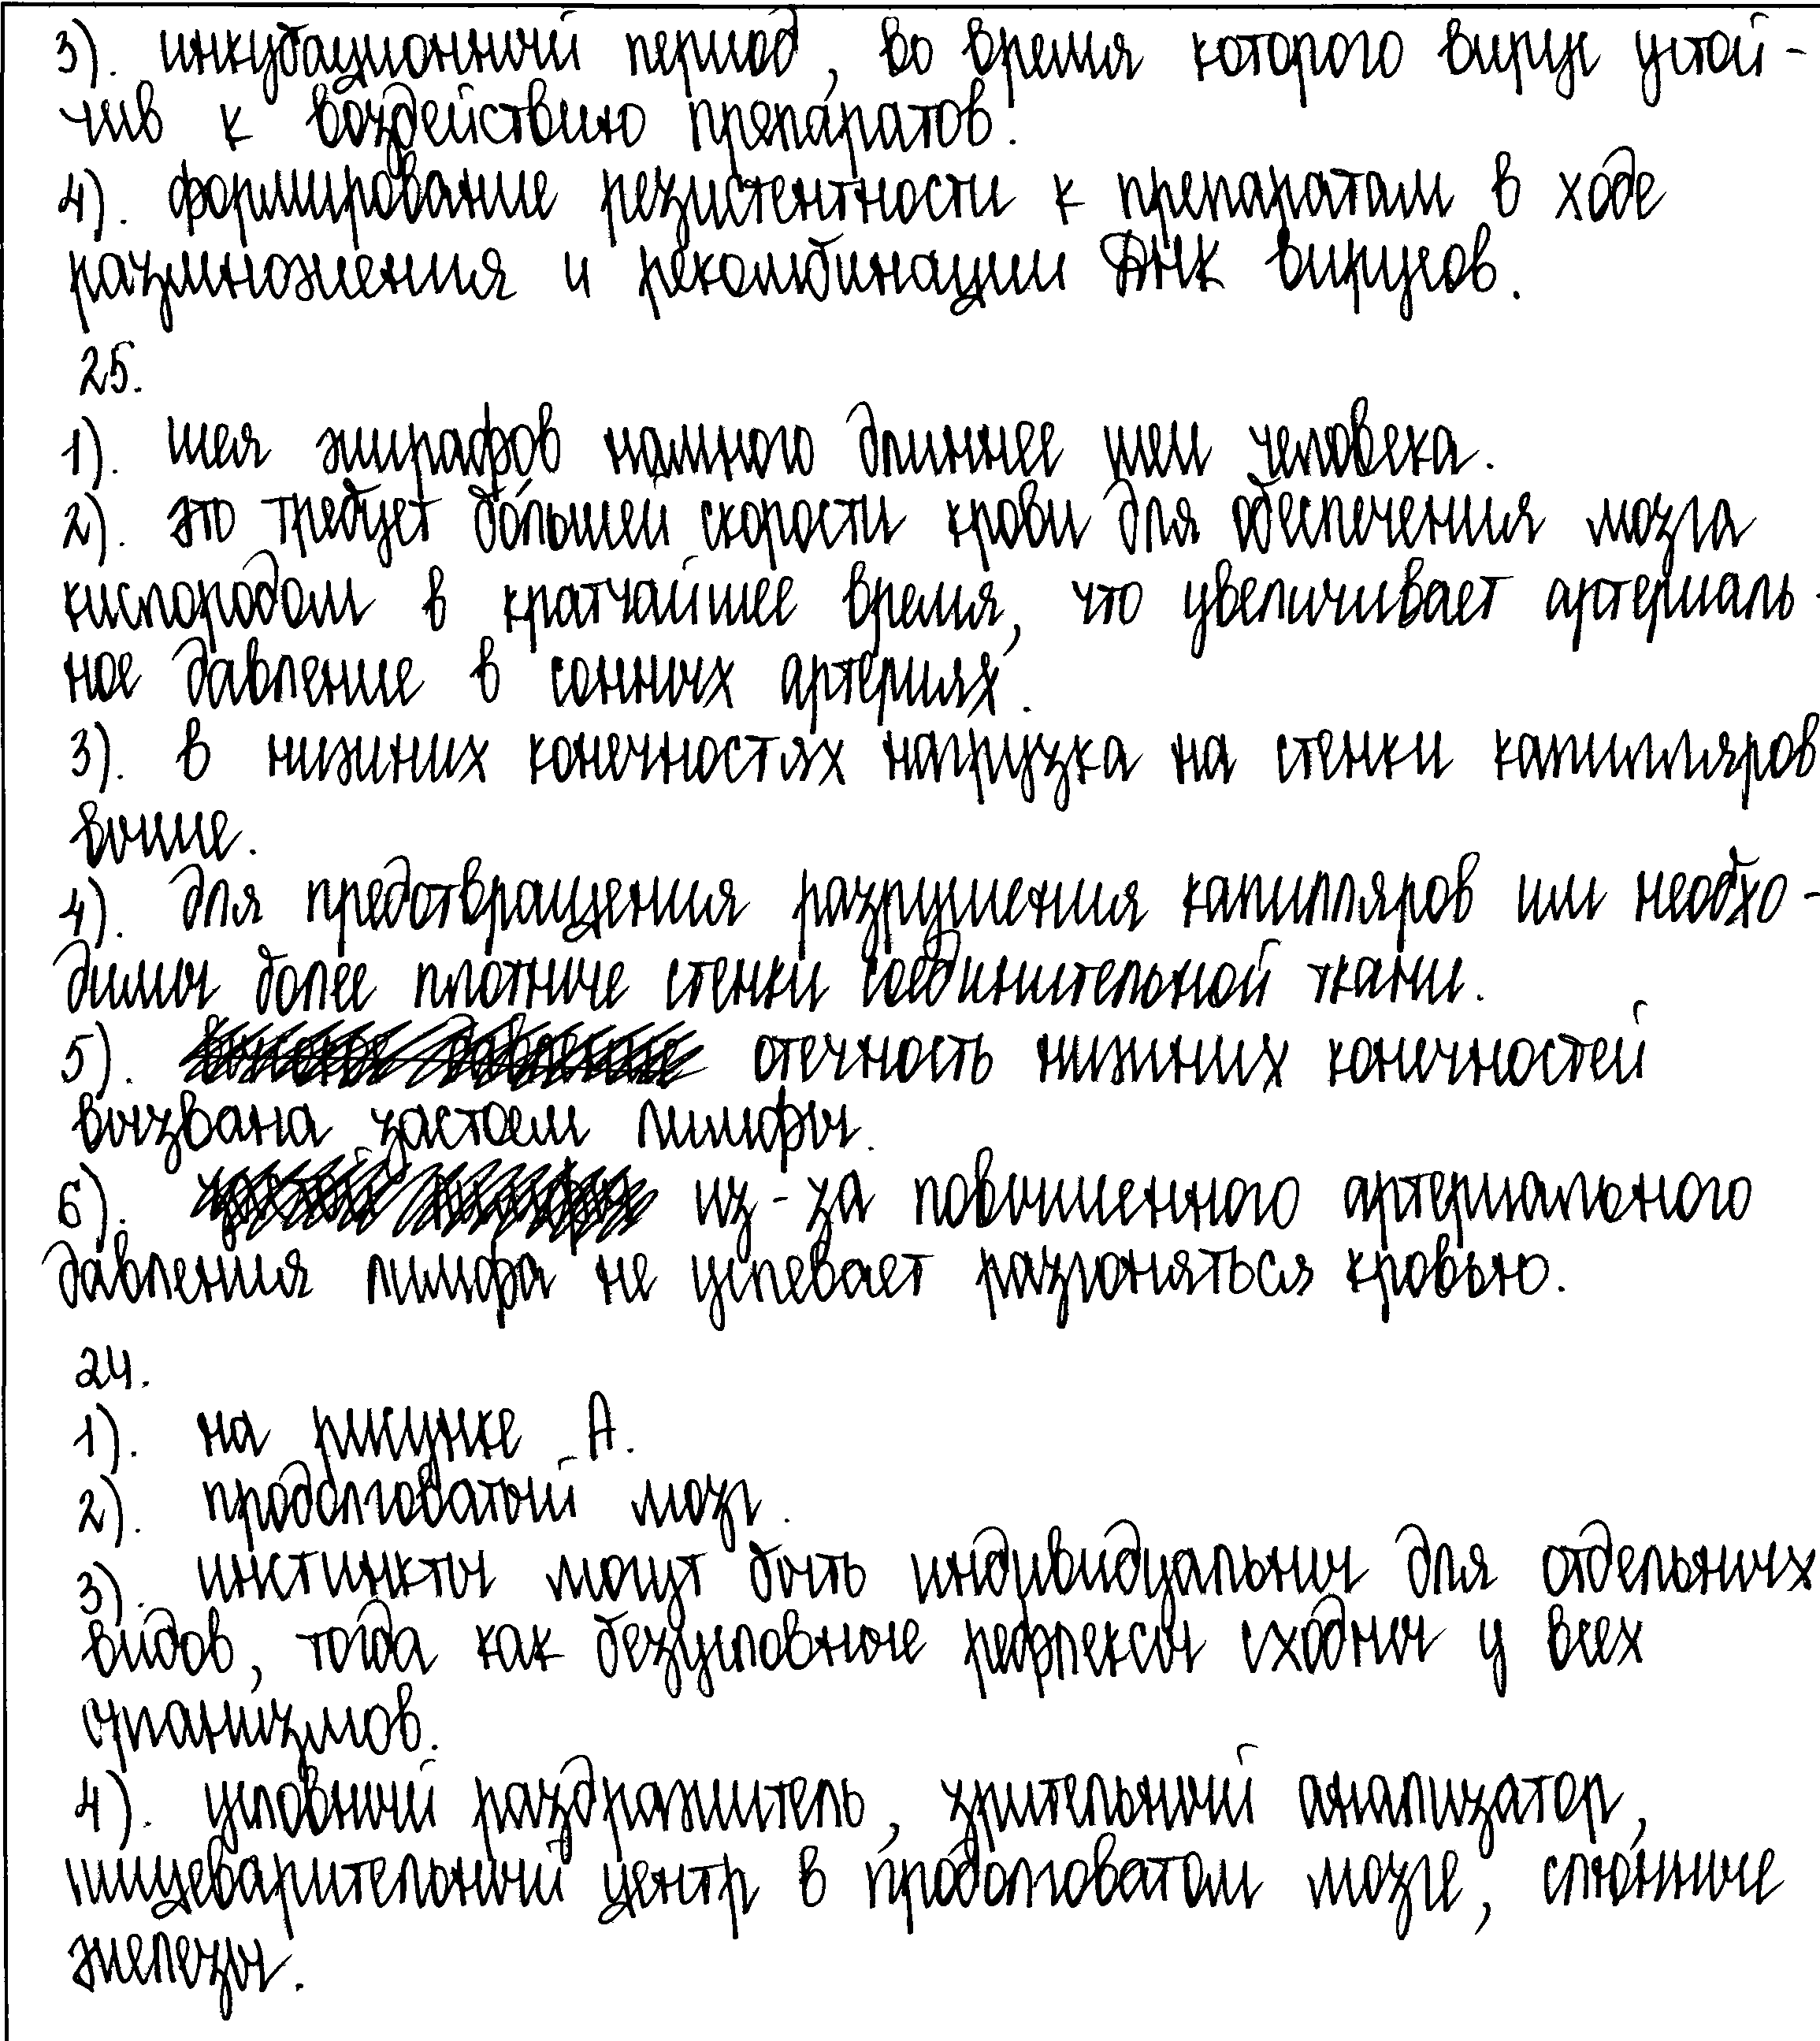 3). инкубационный период, во время которого вирус устой-
чив к воздействию препаратов.
4). формирование резистентности к препаратам в ходе
размножения и рекомбинации ДНК вирусов.
25.
1). шея жирафов намного длиннее шеи человека.
2). это требует бо́льшей скорости крови для обеспечения мозга
кислородом в кратчайшее время, что увеличивает артериаль-
ное давление в сонных артериях.
3). в нижних конечностях нагрузка на стенки капилляров
выше.
4). для предотвращения разрушения капилляров им необхо-
димы более плотные стенки соединительной ткани.
5). отечность нижних конечностей
вызвана застоем лимфы.
6). из-за повышенного артериального
давления лимфа не успевает разгоняться кровью.
24.
1). на рисунке А.
2). продолговатый мозг.
3). инстинкты могут быть индивидуальны для отдельных
видов, тогда как безусловные рефлексы сходны у всех
организмов.
4). условный раздражитель, зрительный анализатор,
пищеварительный центр в продолговатом мозге, слюнные
железы.